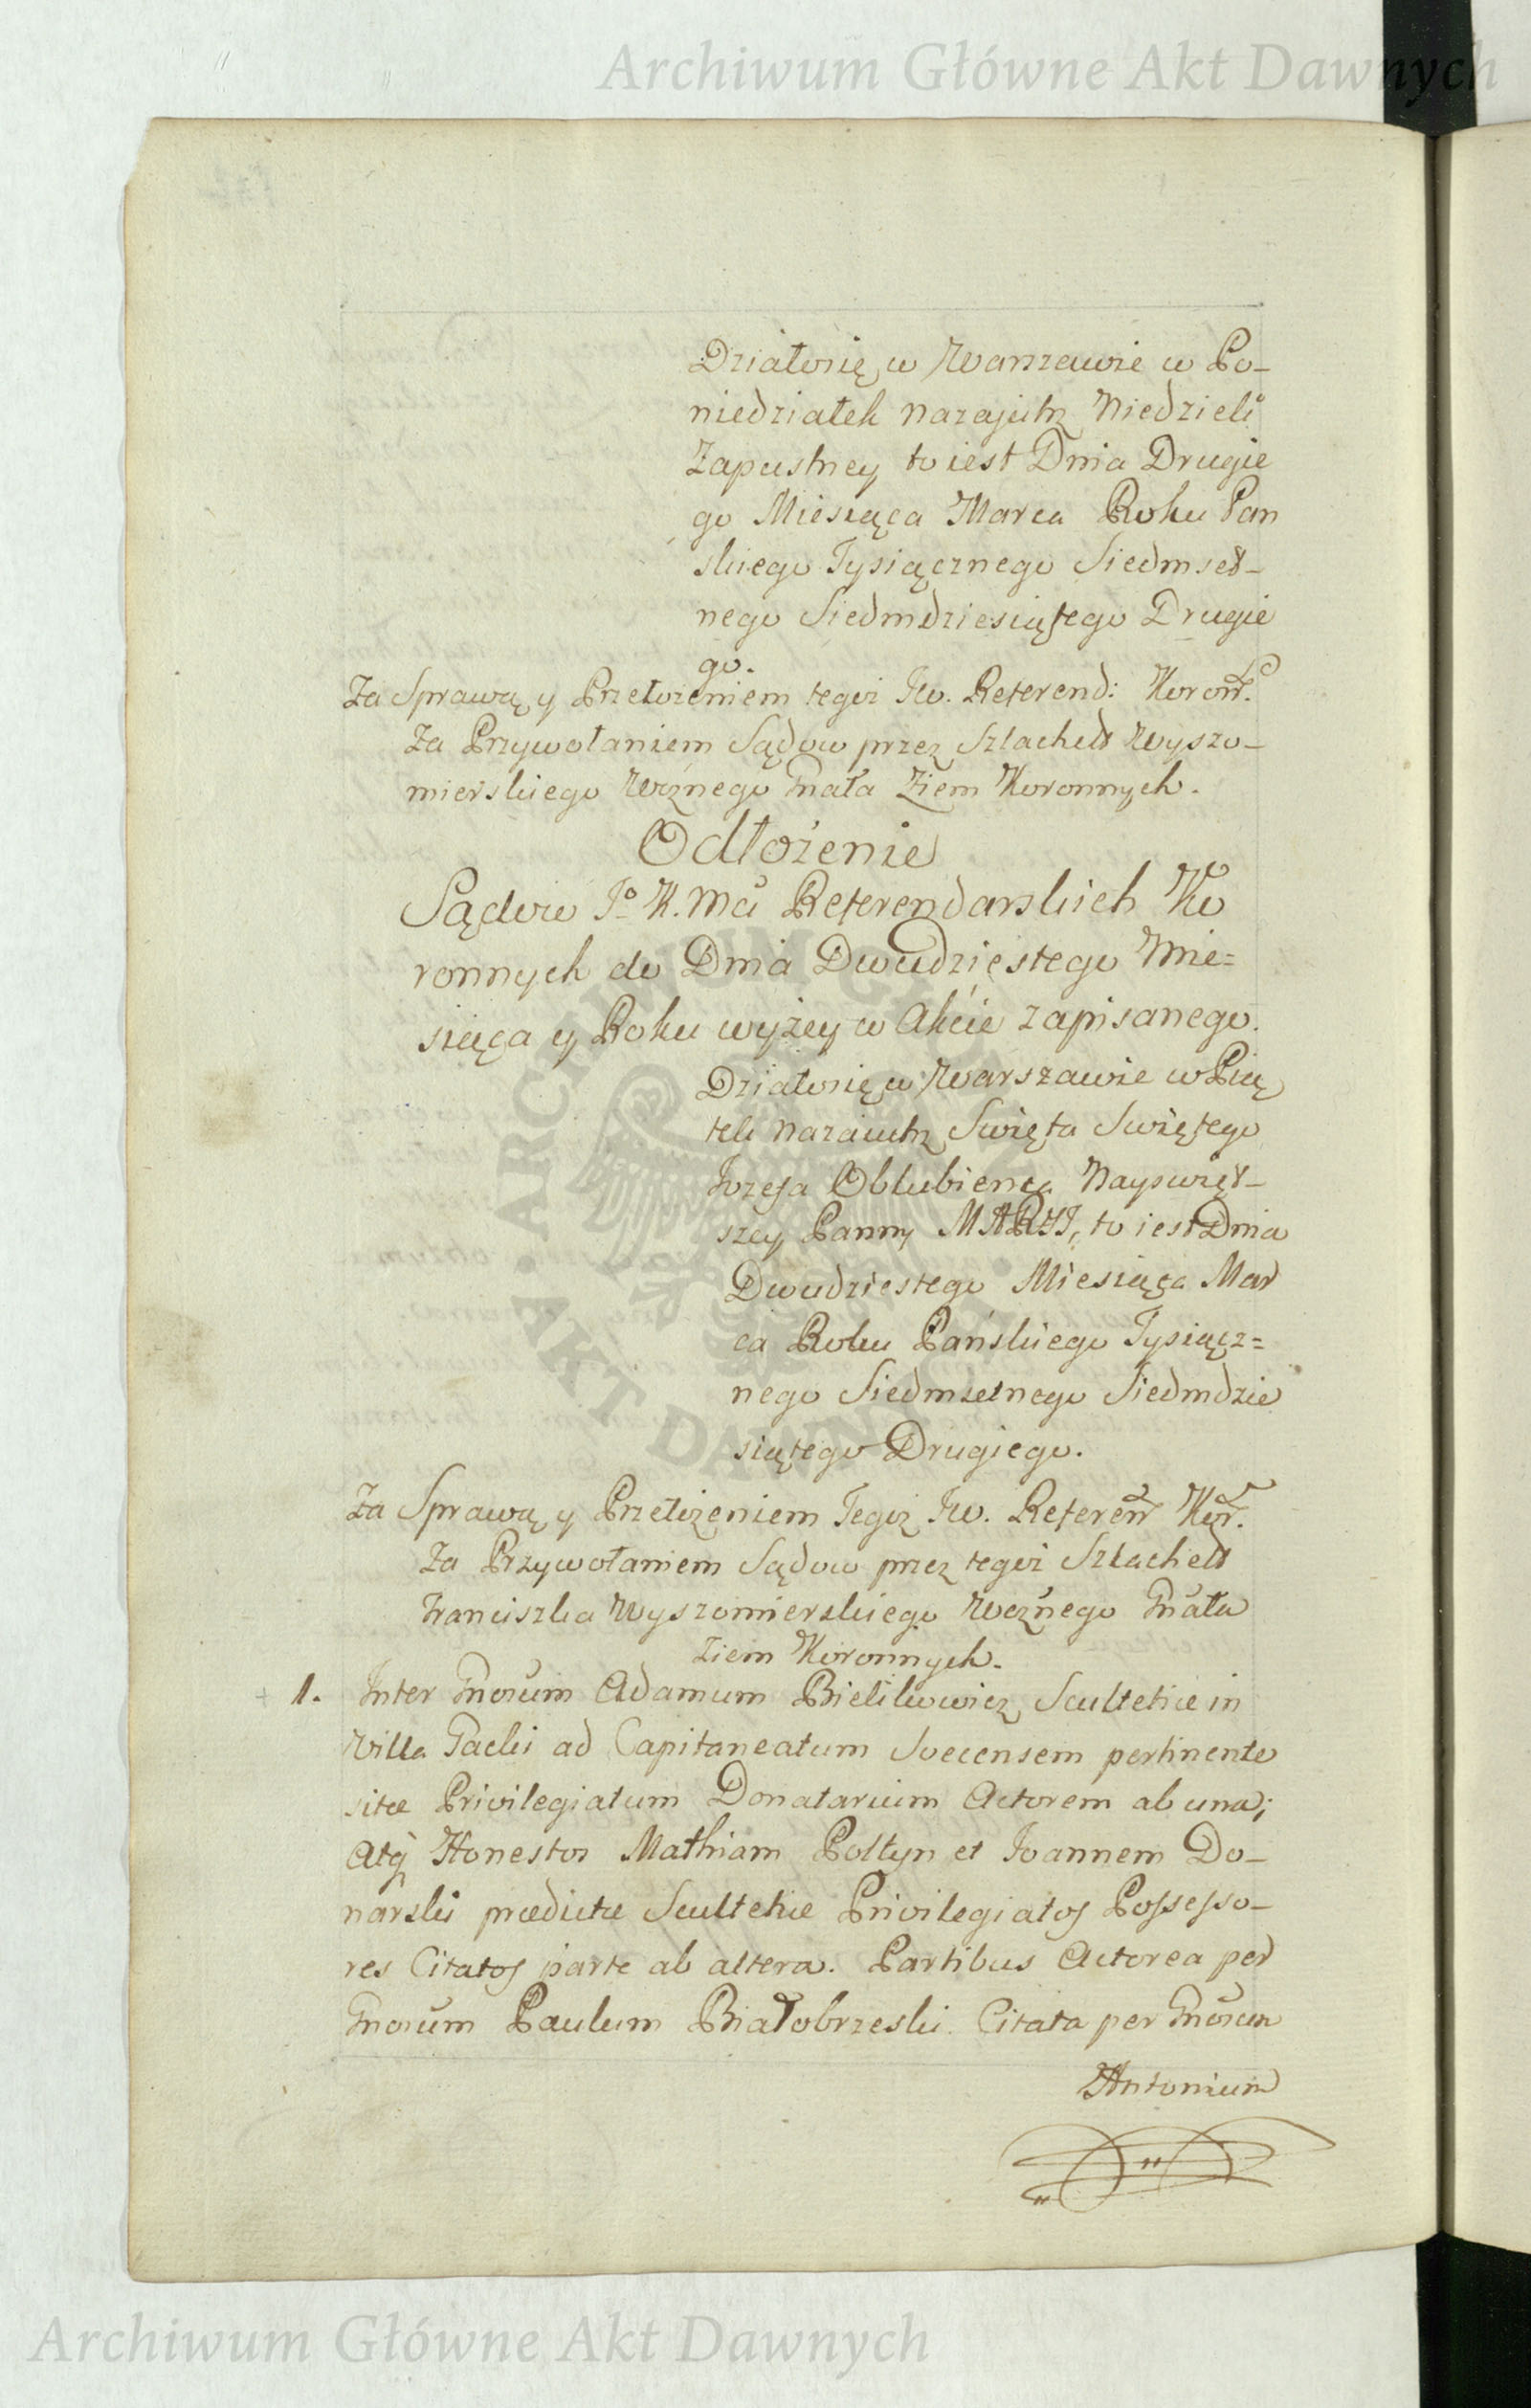 Archiwum Główne Akt Dawnych
Działosię w Warszawie w Po-
niedziałek nazajutrz Niedzieli
Zapustney to iest Dnia Drugie
go Miesiąca Marca Roku Pan
skiego Tysiącznego Siedmset-
nego Siedmdziesiątego Drugie
go.
Za Sprawą y Przełożeniem tegoż Jw. Referend: Koron.
Za Przywołaniem Sądow przez Szlachet Wyszo-
mierskiego Woźnego Gnała Ziem Koronnych.
Odłożenie
Sądow Jo K. Mci Referendarskich Ko
ronnych do Dnia Dwudziestego Mie=
siąca y Roku wyżey w Akcie zapisanego.
Działosię w Warszawie w Pią
tek nazaiutrz Swięta Swiętego
Jozefa Oblubieńca Nayswięt-
szey Panny MARYI, to iest Dnia
Dwudziestego Miesiąca Mar
ca Roku Pańskiego Tysiącz=
nego Siedmsetnego Siedmdzie
siątego Drugiego.
Za Sprawą y Przełożeniem Tegoż Jw. Referen Kor.
Za Przywołaniem Sądow przez tegoż Szlachet
Franciszka Wyszomierskiego Woźnego Gnała
Ziem Koronnych.
1. Inter Gnosum Adamum Bielikowicz Scultetiæ in
Villa Paclii ad Capitaneatum Svecensem pertinente
sitæ Privilegiatum Donatarium Actorem ab una;
Atq Honestos Mathiam Poltyn et Joannem Do-
narski prædictæ Scultetiæ Privilegiatos Possesso-
res Citatos parte ab altera. Partibus Actorea per
Gnosum Paulum Białobrzeski Citata per Gnosum
Antonium
ARCHIWUM GŁÓWNE AKT DAWNYCH
Archiwum Główne Akt Dawnych